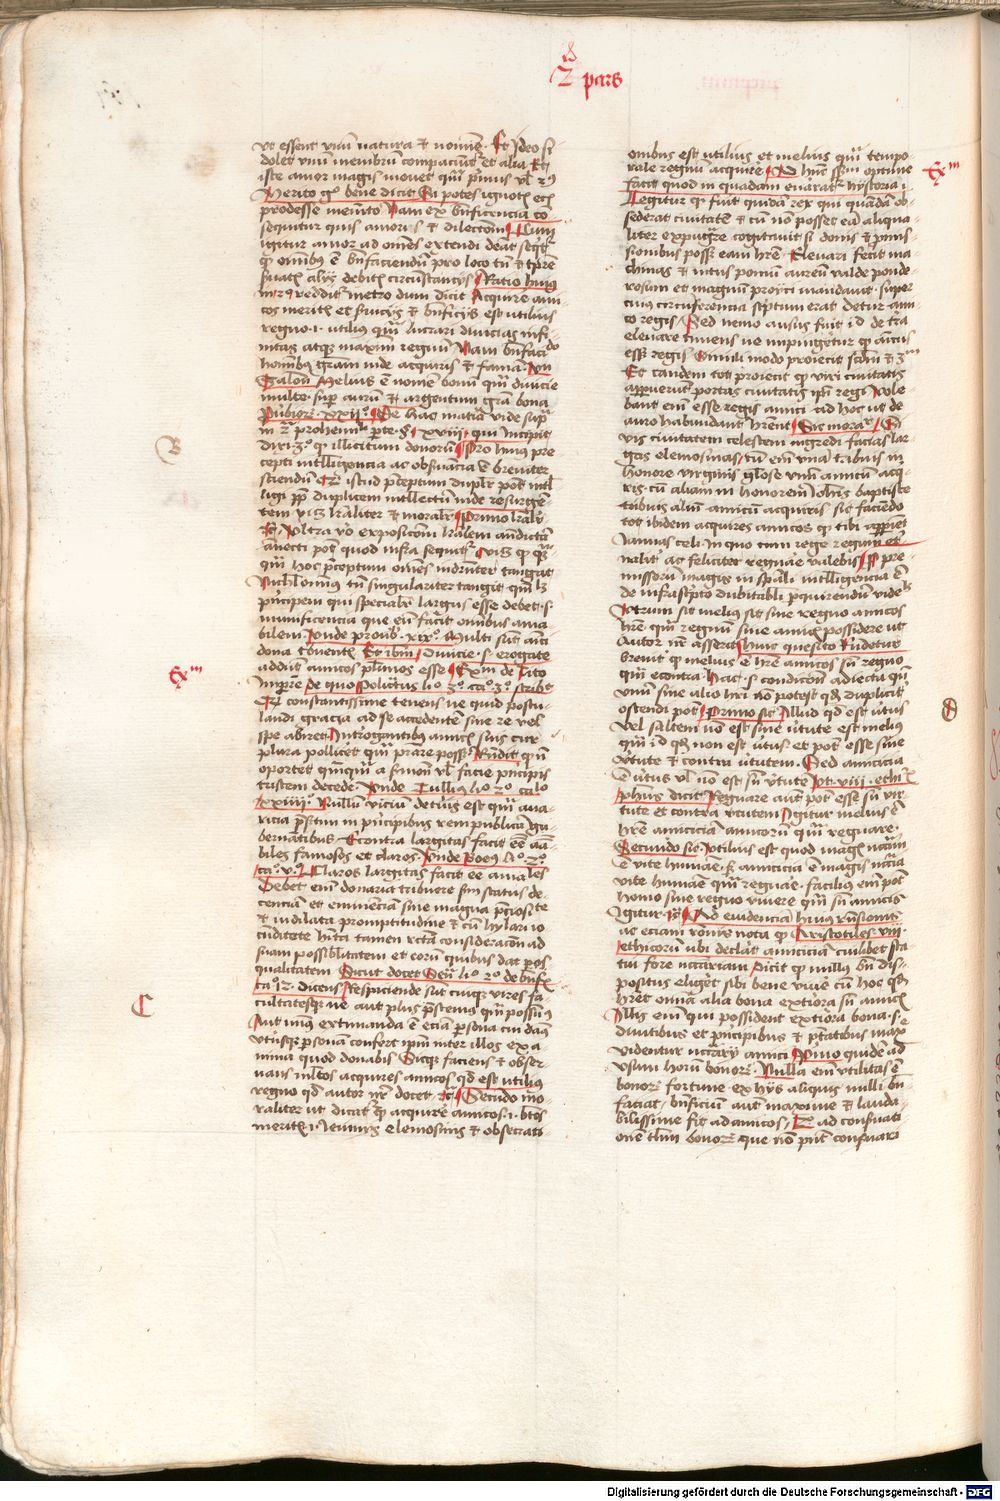 2 pars
ut essent unum natura et nomine. Et Ideo si
dolet unum membrum compaciuntur et alia Et
iste amor magis movet qm primus vel 2us
Merito ergo bene dicit Si potes ignotis eciam
prodesse memento Nam ex bnficencia co
sequitur quis amorem et dilectoem Cum
igitur amor ad omes extendi debeat sequitur
q omibus e bnfaciendum pro loco tm et tpre
servatis alijs debitis circumstancijs Ratio huius
reddit metro dum dicit Acquire ami
cos meritis et servicijs et bnficijs est utilius
regno .i. utilius qm lucrari divicias infi
nitas atque maximum regnum Nam bnfacido
hominibus gram inde acquiris et famam Un
Salon Melius e nome bonum qm divicie
multe sup aurum et argentum gra bona
Proverbiorum xxii De hac materia vide supra
in 2a prohemii pte § xxviii que Incipit
Dixi 3o q illicitum donorum Pro huius pre
cepti intelligencia ac observancia e breviter
sciendum Et istud preceptum dupliciter potest intel
ligi propter duplicem intellectum inde resurgen
tem vz lraliter et moraliter Primo lraliter
Ultra vero exposicoem lralem an dictam
annecti potest quod infra sequitur vz q quamvis
hoc preceptum omes indifferenter tangat
Nichilominus tamen singulariter tangit
principem qui specialiter largus esse debet .s.
munificencia que eum facit omibus ama
bilem. Unde proverb. xix. Multi sunt amici
dona tribuentis Et ibidem Divicie .s. erogate
addunt amicos plurimos esse Exm de Tito
Impere de quo Policratus lio 3o cao 3o scribit
Et constantissime tenens ne quid postu
landi gracia ad se accedentem sine re vel
spe abiret Introgantibus amicis suis cur
plura polliceretur qm prestare posset Respondit quod non
oportet quemquam a sermone vel facie principis
tristem decedere. Unde Tullius lio 2o calo
xxiiii. Nullum vicium detrius est qm ava
ricia presertim in principibus rem publicam gu
bernantibus Econtra largitas facit eos
biles famosos et claros Unde Boecius lio 2o
ca. v. Claros largitas facit ee amabiles
Debet enim donaria tribuere secundum status de
cenciam et eminenciam sine magna
et indilata promptitudine et cum hylari io
cunditate habita tamen recta consideracoem ad
suam possibilitatem et eorum quibus dat personas
qualitatem Sicut docet Seneca lio 2o de benefi
ca 12. dicens Respiciende sunt cuique vires fa
cultatesque ne aut plus prestemus qm possumus
Aut minus extimanda e eciam persona cui damus
utriusque personam confert ipsum inter illos exa
minia quod donabis Sicque faciens et obser
vans multos acquires amicos qd est utilius
regno qd autor nr docet Secundo mo
raliter ut dicatur sic acquire amicos .i. btos
meritis .i. Ieiuniis elemosinis et obsecrati
onibus est utilius et melius qm tempo
rale regnum acquire Ad huius sensum optime
facit quod in quadam enarratur hystoria
Legitur q fuit quidam rex qui quandam ob
sederat civitatem et cum non posset eam aliqua
liter expugnare cogitavit si donis et promis
sionibus posset eam hre. Elevari fecit ma
chinas et intus pomum aureum valde ponde
rosum et magnum proyci mandavit. super
cuius circumferencia scriptum erat detur ami
co regis Sed nemo ausus fuit id de tra
elevare timens ne impingeretur q amicus
esset regis Simili modo proiecit scdm et 3m
Et tandem tot proiecit q viri civitatis
apperuerunt portas civitatis ipsi regi. Vole
bant enim esse regis amici ad hoc ut de
auro habundanter hrent Sic moraliter Si
vis civitatem celestem ingredi facias lar
gas elemosinas tum enim unam tribuis in
honore virginis gloriose unum amicum acq
ris. cum aliam in honorem Iohannis baptiste
tribuis alium amicum acquiris sic faciendo
tot ibidem acquires amicos q tibi apperient
Ianuas celi. In quo cum rege regum et
naliter ac feliciter regnare valebis Ex pre
missorum magis in speciali intelligencia e
de infrascripto dubitabili perquirendum videlicet
Utrum sit melius sit sine regno amicos
hre qm regnum sine amicis possidere ut
Autor nr asserit Huic quesito Respondetur
breviter q melius e hre amicos sine regno
qm econtra Hac .s. condicoem adiecta quod
unum sine alio hri non potest qd dupliciter
ostendi potest Primo sic Illud qd est virtus
vel saltem non est sine virtute est melius
qm id qd non est virtus et potest esse sine
virtute et contra virtutem. Sed amicicia
e virtus vel non est sine virtute Ut viii ethi
phus dicit Regnare autem potest esse sine vir
tute et contra virtutem Igitur melius e
hre amiciciam amicorum qm regnare.
Secundo sic Utilius est quod magis necessarium
e vite humane. Sed amicicia e magis necessaria
vite humane qm regnare. facilius enim potest
homo sine regno vivere qm sine amicis
Igitur Ad evidenciam huius responsionis
ac eciam racionis nota q Aristotiles viii
ethicorum ubi declarat amiciciam cuilibet sta
tui fore necessariam Dicit q nullus bene dis
positus eligeret sibi bene vivere cum hoc quod
hret omnia alia bona exteriora sine amicis
Illis enim qui possident exteriora bona .s.
divitibus et principibus et potentatibus maxime
videntur necessarii amici Primo quidem ad
usum horum bonorum. Nulla enim utilitas e
bonorum fortune ex hijs aliquis nulli bene
faciat. bnficium autem maxime et lauda
bilissime fit ad amicos. Et ad conservati
onem talium bonorum que non possunt conservari
Exm
Exm
B
C
D
Digitalisierung gefördert durch die Deutsche Forschungsgemeinschaft - DFG